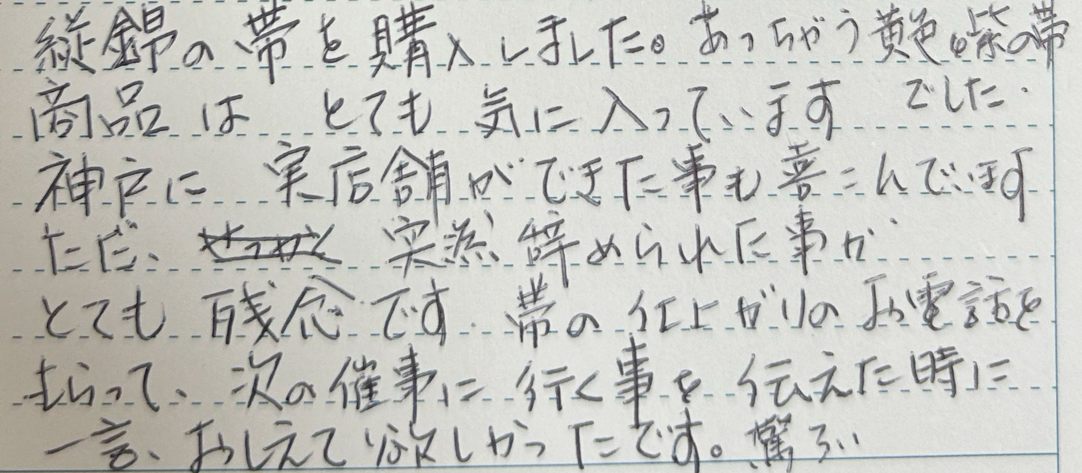 縦錦の帯を購入しました。あっちゃう黄色と紫の帯
商品は とても 気に入っています でした.
神戸に 実店舗ができた事も喜こんでいます
ただ、 突然 辞められた事が
とても 残念です. 帯の仕上がりのお電話を
もらって、次の催事に行く事を伝えた時に
一言、おしえて欲しかったです。驚ろい